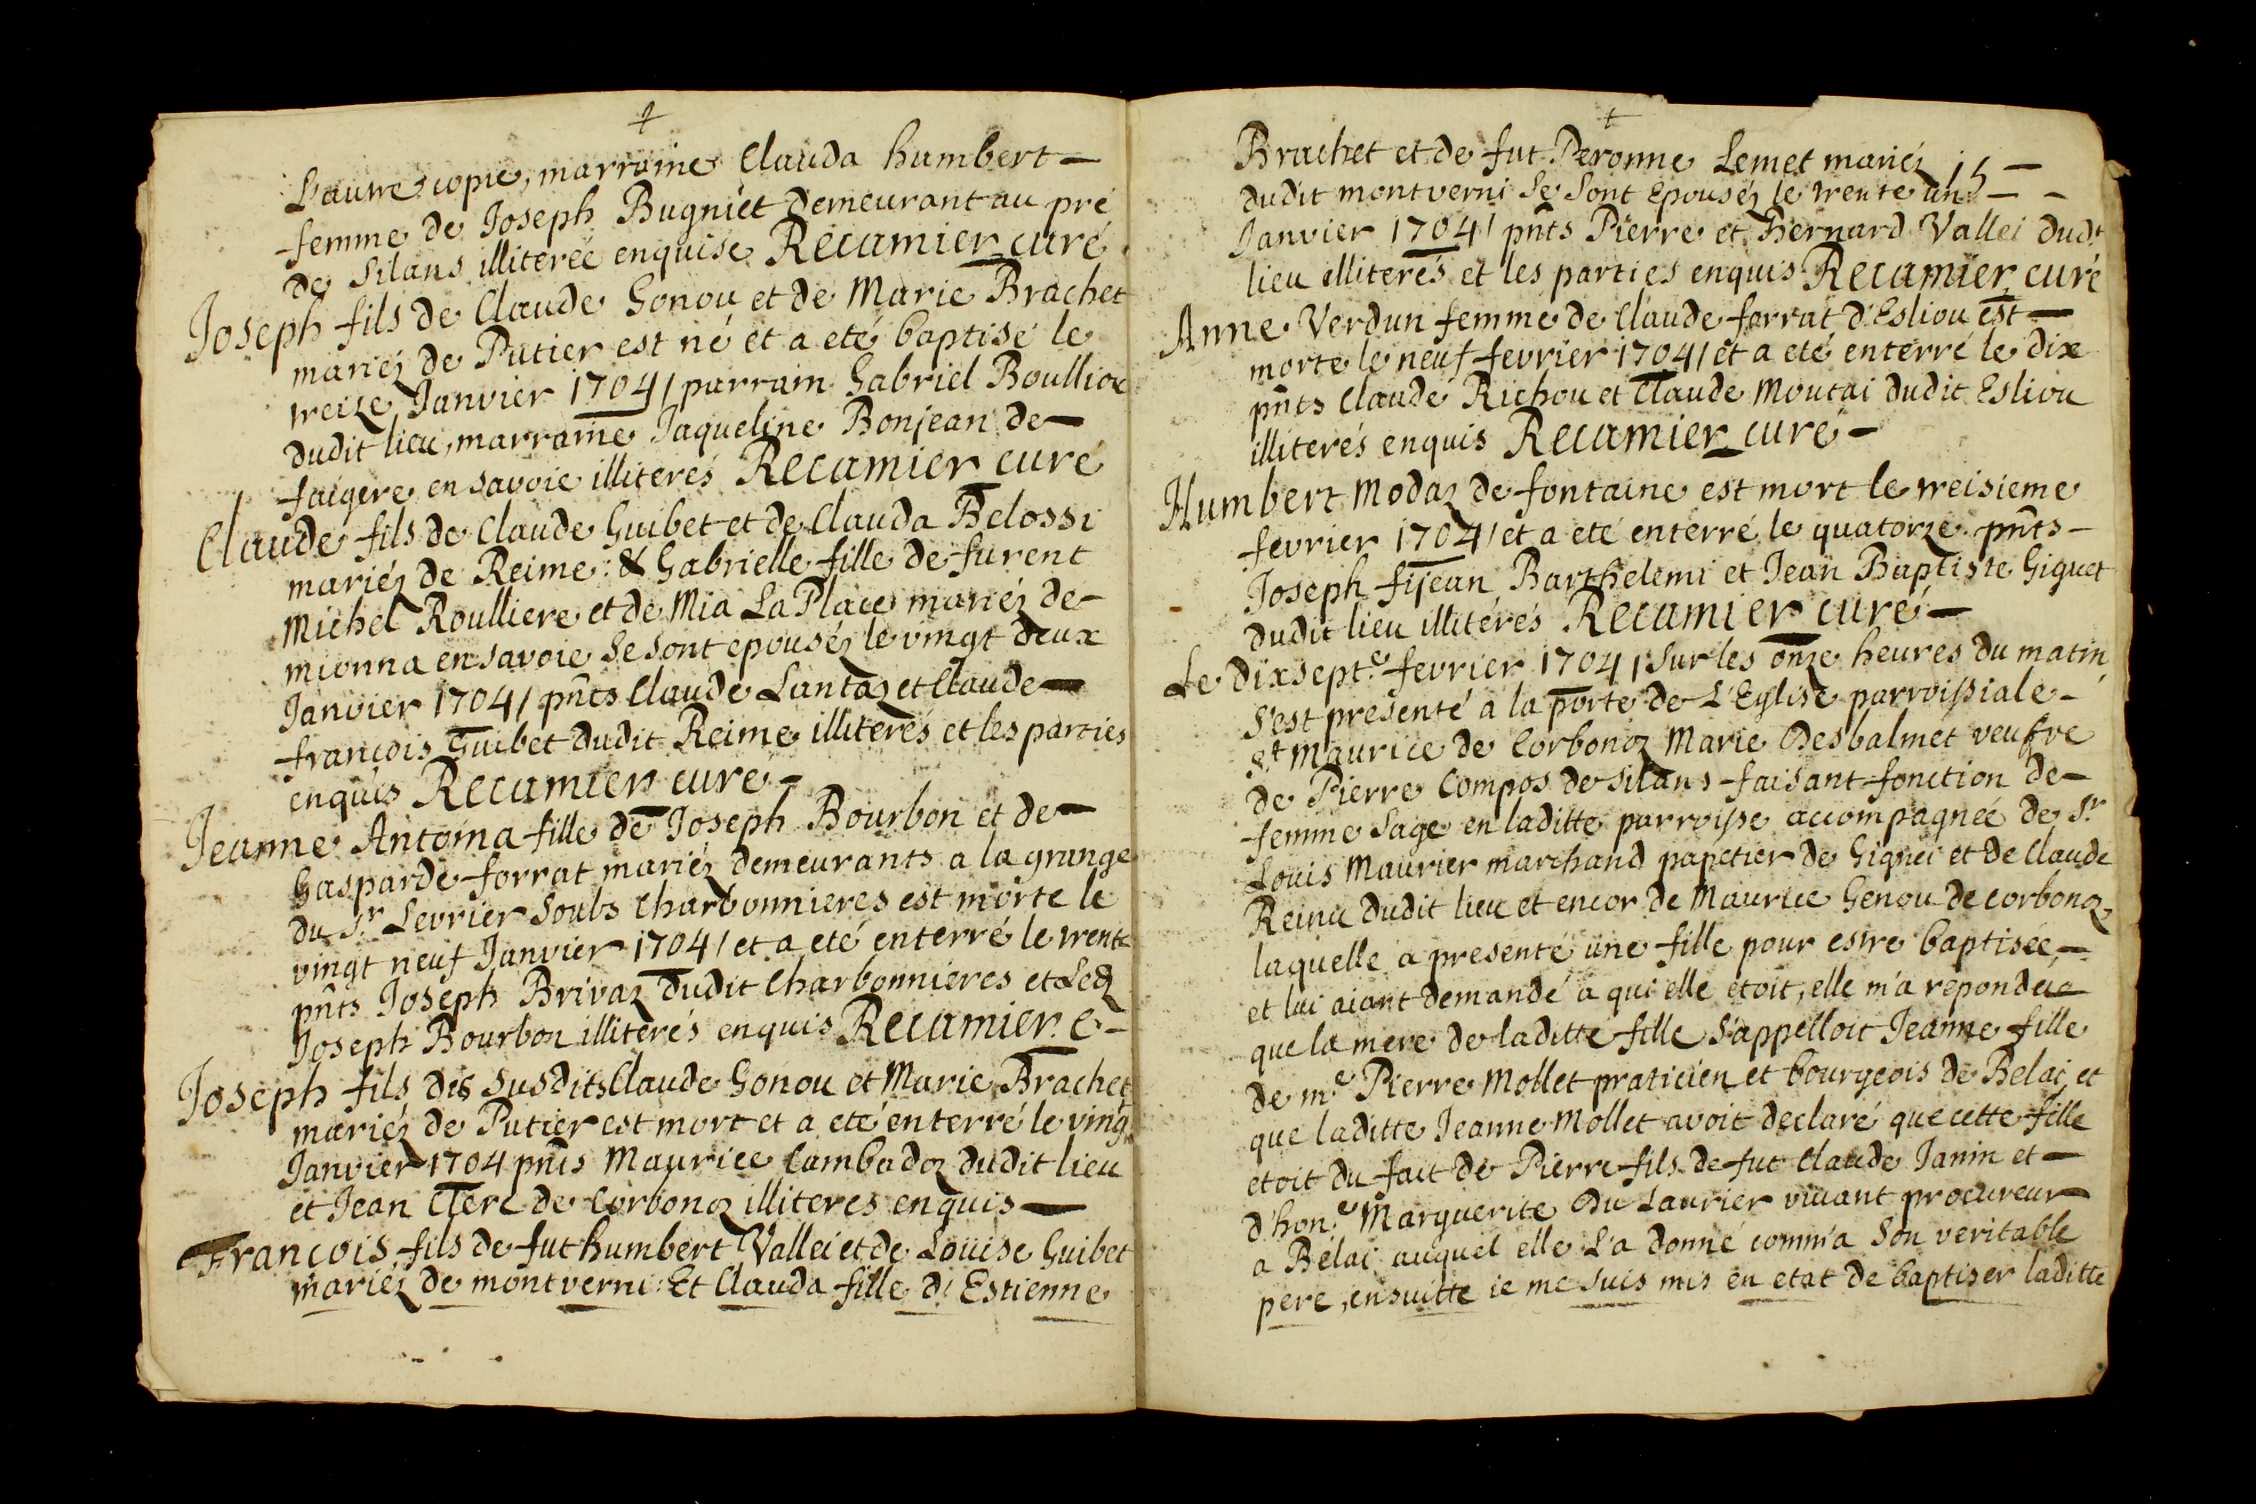 L'autre copie, marraine Clauda humbert —
femme de Joseph Bugniet demeurant au pré
de Silans illiterée enquise Récamier curé
Joseph fils de Claude Gonou et de Marie Brachet
mariéz de Putier est né et a eté baptisé le
treize Janvier 1704 / parrain Gabriel Boulliox
dudit lieu, marraine Jaqueline Bonjean de —
faigere en savoie illiterés Récamier curé
Claude fils de Claude Guibet et de Clauda Belossi
mariéz de Reime : & Gabrielle fille de furent
Michel Roulliere et de Mia La Place mariéz de -
mionna en savoie se sont epouséz le vingt deux
Janvier 1704 / pnts Claude Lantaz et Claude —
françois Guibet dudit Reime illiterés et les parties
enquis Récamier curé -
Jeanne Antoina fille de Joseph Bourbon et de —
Gasparde forrat mariéz demeurants a la grange
du Sr. Levrier Soubs Charbonnieres est morte le
vingt neuf Janvier 1704 / et a eté enterré le trente
pnts Joseph Brivaz dudit Charbonnieres et Led
Joseph Bourbon illiterés enquis Récamier C -
Joseph fils des susdits Claude Gonou et Marie Brachet
mariéz de Putier est mort et a eté enterré le ving
Janvier 1704 pnts Maurice Cambadoz dudit lieu
et Jean Clerc de Corbonoz illiteres enquis —
François fils de fut humbert Vallei et de Louise Guibet
mariéz de montverni : Et Clauda fille d' Estienne
Brachet et de fut Peronne Lemet mariéz
dudit montverni se sont Epouséz le trente un —
Janvier 1704 / pnts Pierre et Bernard Vallei dudt
lieu illiterés et les parties enquis Récamier curé
Anne Verdun femme de Claude forrat d'Esliou est —
morte le neuf fevrier 1704 / et a eté enterré le dix
pnts Claude Richou et Claude Moutai dudit Esliou
illiterés enquis Récamier curé -
Humbert Modaz de fontaine est mort le treisieme
fevrier 1704 / et a eté enterré le quatorze pnts -
Joseph fijean Barthelemi et Jean Baptiste Giguet
dudit lieu illitérés Récamier curé —
Le dixsepte. fevrier 1704 / sur les onze heures du matin
s'est presenté a la porte de L'Eglise parroissiale -
st Maurice de Corbonoz Marie Desbalmet veufve
de Pierre Compos de Silans faisant fonction de -
femme sage en laditte parroisse accompagnée de Sr.
Louis Maurier marchand papetier de Gignei et de Claude
Reinu dudit lieu et encor de Maurice Genou de corbonoz
laquelle a presenté une fille pour estre baptisée, -
et lui aiant demandé a qui elle étoit, elle m'a reponduë
que la mere de laditte fille s'appelloit Jeanne fille
de me. Pierre Mollet praticien et bourgeois de Belai, et
que laditte Jeanne Mollet avoit declaré que cette fille
etoit du fait de Pierre fils de fut Claude Janin et —
d'hone. Marguerite Du Laurier vivant procureur
a Bélai auquel elle L'a donné comm'a son veritable
pere, ensuitte ie me suis mis en etat de baptiser laditte